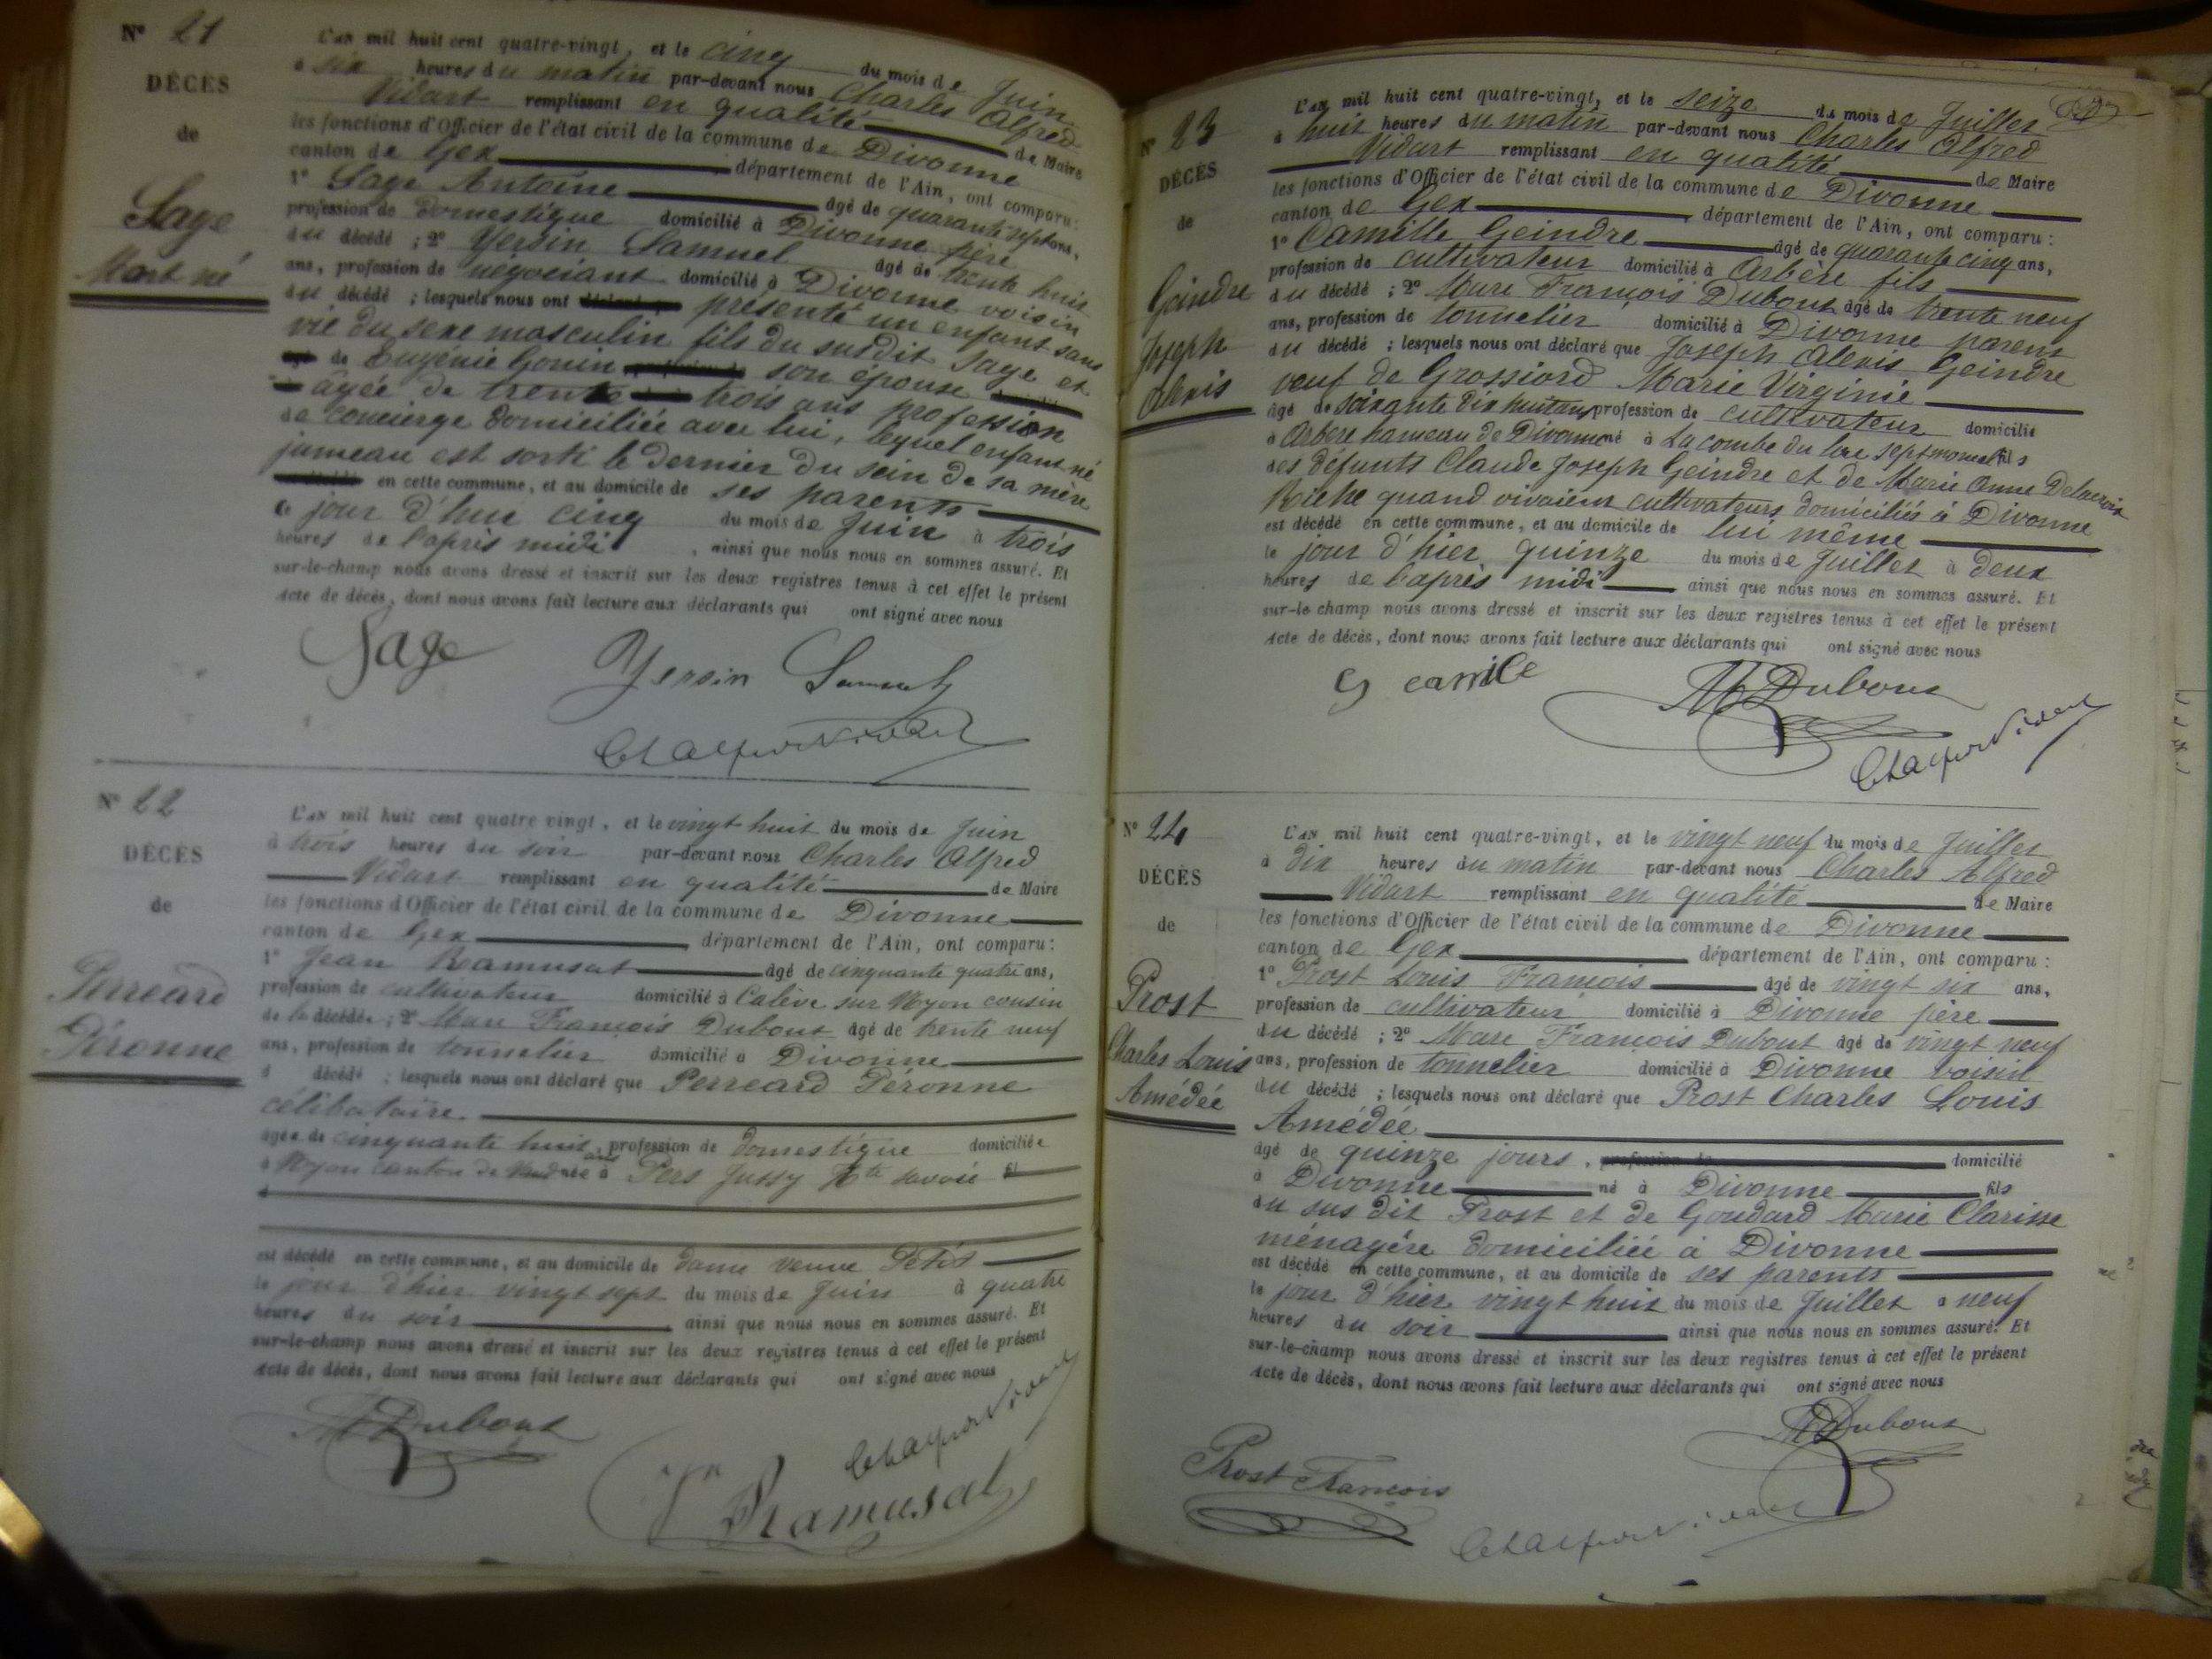 N° 21
DÉCÈS
de
Sage
Mort né
L'an mil huit cent quatre-vingt, et le cinq du mois de Juin
à six heures du matin par-devant nous Charles Alfred
Vidart remplissant en qualité de Maire
les fonctions d'Officier de l'état civil de la commune de Divonne
canton de Gex département de l'Ain, ont comparu:
1° Sage Antoine âgé de quarante sept ans,
profession de domestique domicilié à Divonne père
du décédé ; 2° Yersin Samuel âgé de trente huit
ans, profession de négociant domicilié à Divonne voisin
du décédé ; lesquels nous ont présenté un enfant sans
vie du sexe masculin fils du susdit Sage et
de Eugénie Gonin son épouse
âgée de trente trois ans profession
de concierge domiciliée avec lui, lequel enfant né
jumeau est sorti le dernier du sein de sa mère
en cette commune, et au domicile de ses parents
ce jour d'hui cinq du mois de Juin à trois
heures de l'après midi, ainsi que nous nous en sommes assuré. Et
sur-le-champ nous avons dressé et inscrit sur les deux registres tenus à cet effet le présent
acte de décès, dont nous avons fait lecture aux déclarants qui ont signé avec nous
Sage
Yersin Samuel
N° 22
DÉCÈS
de
Perreard
Péronne
L'an mil huit cent quatre vingt, et le vingt huit du mois de Juin
à trois heures du soir par-devant nous Charles Alfred
Vidart remplissant en qualité de Maire
les fonctions d'Officier de l'état civil de la commune de Divonne
canton de Gex département de l'Ain, ont comparu:
1° Jean Ramusat âgé de cinquante quatre ans,
profession de cultivateur domicilié à sur Nyon cousin
de la décédée ; 2° Marc François Dubout âgé de trente neuf
ans, profession de tonnelier domicilié à Divonne
d décédé ; lesquels nous ont déclaré que Perreard Péronne
célibataire
âgée de cinquante huit ans, profession de domestique domiciliée
à Nyon canton de Vaud née à Pers Jussy Hte Savoie
est décédé en cette commune, et au domicile de dame veuve
le jour d'hier vingt sept du mois de Juin à quatre
heures du soir ainsi que nous nous en sommes assuré. Et
sur-le-champ nous avons dressé et inscrit sur les deux registres tenus à cet effet le présent
acte de décès, dont nous avons fait lecture aux déclarants qui ont signé avec nous
M Dubout
Ramusat
N° 23
DÉCÈS
de
Geindre
Joseph
Alexis
L'an mil huit cent quatre-vingt, et le seize du mois de Juillet
à huit heures du matin par-devant nous Charles Alfred
Vidart remplissant en qualité de Maire
les fonctions d'Officier de l'état civil de la commune de Divonne
canton de Gex département de l'Ain, ont comparu :
1° Camille Geindre âgé de quarante cinq ans,
profession de cultivateur domicilié à Arbère fils
du décédé ; 2° Marc François Dubout âgé de trente neuf
ans, profession de tonnelier domicilié à Divonne parent
du décédé ; lesquels nous ont déclaré que Joseph Alexis Geindre
veuf de Grossiord Marie Virginie
âgé de soixante dix huit ans profession de cultivateur domicilié
à Arbère hameau de Divonne né à La combe du lac septmoncel fils
des défunts Claude Joseph Geindre et de Marie Anne Delacroix
Riche quand vivaient cultivateurs domiciliés à Divonne
est décédé en cette commune, et au domicile de lui même
le jour d'hier quinze du mois de Juillet à deux
heures de l'après midi ainsi que nous nous en sommes assuré. Et
sur-le champ nous avons dressé et inscrit sur les deux registres tenus à cet effet le présent
acte de décès, dont nous avons fait lecture aux déclarants qui ont signé avec nous
G camile
M Dubout
N° 24
DÉCÈS
de
Prost
Charles Louis
Amédée
L'an mil huit cent quatre-vingt, et le vingt neuf du mois de Juillet
à dix heures du matin par-devant nous Charles Alfred
Vidart remplissant en qualité de Maire
les fonctions d'Officier de l'état civil de la commune de Divonne
canton de Gex département de l'Ain, ont comparu :
1° Prost Louis François âgé de vingt six ans,
profession de cultivateur domicilié à Divonne père
du décédé ; 2° Marc François Dubout âgé de vingt neuf
ans, profession de tonnelier domicilié à Divonne voisin
du décédé ; lesquels nous ont déclaré que Prost Charles Louis
Amédée
âgé de quinze jours, domicilié
à Divonne né à Divonne fils
du sus dit Prost et de Goudard Marie Clarisse
ménagère domiciliée à Divonne
est décédé en cette commune, et au domicile de ses parents
le jour d'hier vingt huit du mois de Juillet à neuf
heures du soir ainsi que nous nous en sommes assuré. Et
sur-le-champ nous avons dressé et inscrit sur les deux registres tenus à cet effet le présent
acte de décès, dont nous avons fait lecture aux déclarants qui ont signé avec nous
M Dubout
Prost François